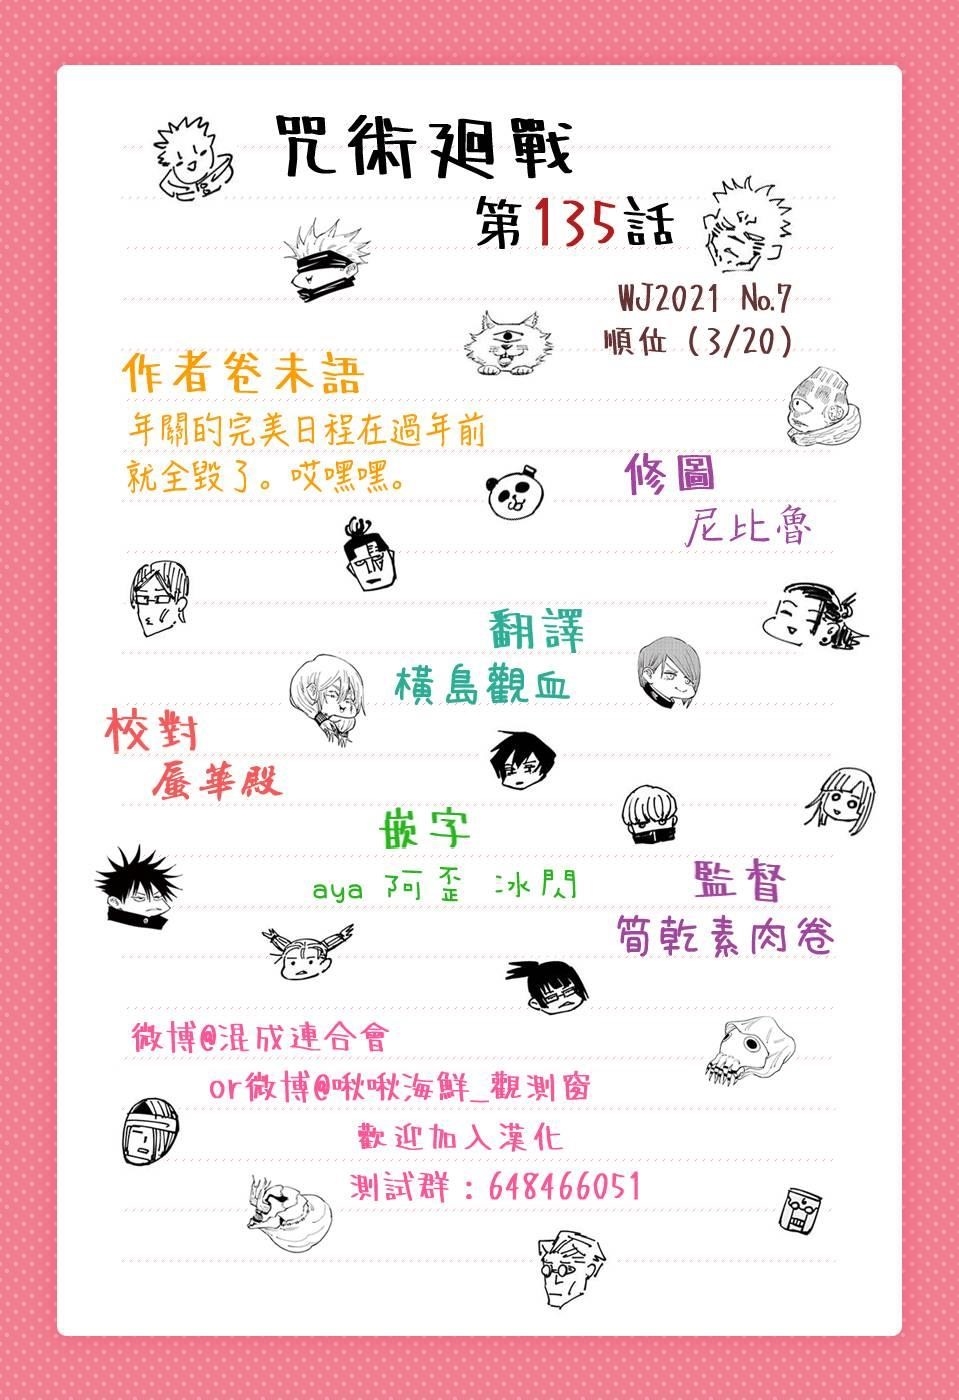 咒術廻戰
第135話
WJ2021 No.7
順位（3/20）
作者卷末語
年關的完美日程在過年前
就全毀了。哎嘿嘿。
修圖
尼比魯
翻譯
橫島觀血
校對
蜃華殿
嵌字
aya 阿歪 冰閃
監督
筒乾素肉卷
微博@混成連合會
or微博@啾啾海鮮_觀測窗
歡迎加入漢化
測試群：648466051